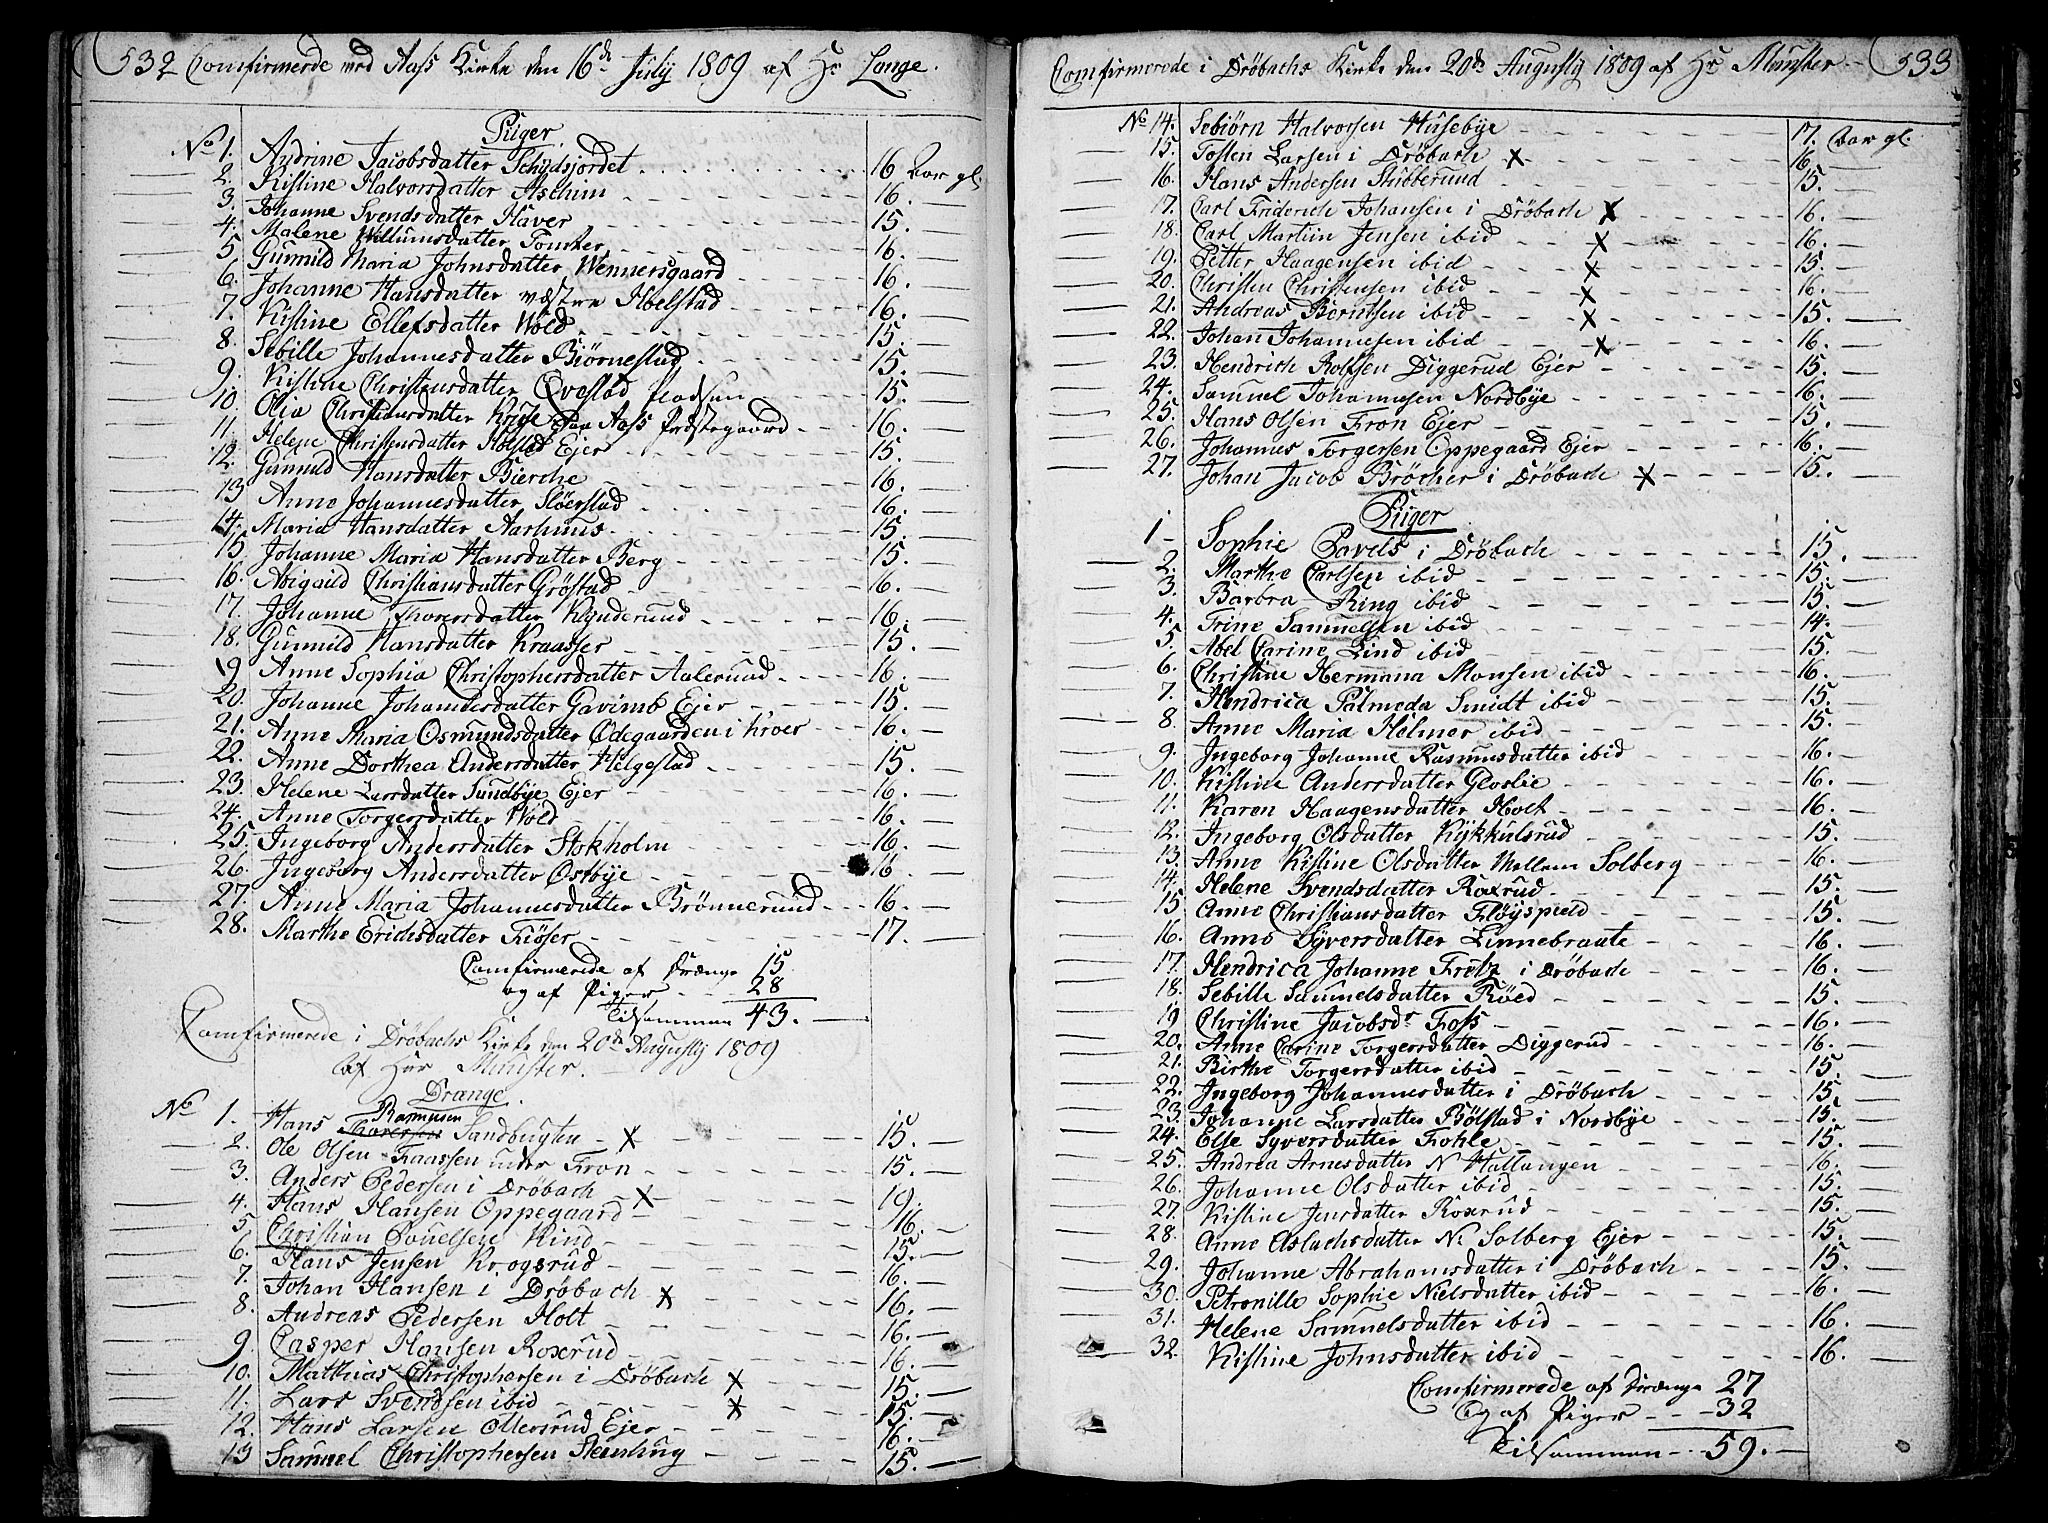 532 Comfirmerede ved Aass Kirke den 16de July 1809 af Hr Lange.
Piger
No 1. Andrine Jacobsdatter Schydsjordet 16 Aar gl.
2. Kistine Halvorsdatter Aschim 16.
3. Johanne Svendsdatter Haver 15.
4. Malene Willumsdatter Tomter 16.
5. Gunnild Maria Johnsdatter Wennersgaard 16.
6. Johanne Hansdatter væstre Holstad 16.
7. Kistine Ellefsdatter Wold 15.
8. Sebille Johannesdatter Biørnestad 15.
9. Kistine Christensdatter Qvestad Pladsen 15.
10. Olia Christiansdatter Kruse paa Aass Præstegaard 16.
11. Helene Christensdatter Holstad Ejer 15.
12. Gunnild Hansdatter Bierche 16.
13 Anne Johannesdatter Sløerstad 16.
14. Maria Hansdatter Aarhuus 15.
15. Johanne Maria Hansdatter Berg 15.
16. Abigaild Christiansdatter Grøstad 16.
17. Johanne Thorersdatter Kynderund 16.
18. Gunnild Hansdatter Kraasser 15.
19 Anne Sophia Christophersdatter Aalerund 16.
20. Johanne Johannesdatter Garimb Ejer 15.
21. Anne Maria Osmundsdatter Ødegaarden i Kroer 16.
22. Anne Dorthea Andersdatter Helgestad 15.
23. Helene Larsdatter Sundbye Ejer 16.
24. Anne Torgersdatter Wold 16.
25. Ingeborg Andersdatter Stokholm 16.
26. Ingeborg Andersdatter Østbye 16
27. Anne Maria Johannesdatter Brønnerund 16.
28. Marthe Erichsdatter Fiøser 17.
Comfirmerede af Drænge 15
og af Piger 28
Tilsammen 43.
Comfirmerede i Drøbachs Kirke den 20de Augusty 1809
af Herr Munster.
Drænge
No 1. Hans Rasmusen Thoresen Sandbugten X 15.
2. Ole Olsen Faassen under Fron 15.
3. Anders Pedersen i Drøbach X 19.
4. Hans Hansen Oppegaard 16.
5. Christian Povelsen Kind 15.
6. Hans Jensen Krogsrud 16.
7. Johan Hansen i Drøbach X 16.
8. Andreas Pedersen Holt 16.
9. Casper Hansen Roxrud 16.
10. Matthias Christophersen i Drøbach X 15.
11. Lars Svendsen ibid X 15.
12. Hans Larsen Ottersrud Ejer 16.
13 Samuel Christophersen Stemling 15.
Comfirmerede i Drøbachs Kirke den 20de Augusty 1809 af Hr Munster 533
No 14. Sebiørn Halvorsen Husebye 17. Aar gl.
15. Tosten Larsen i Drøbach X 16.
16. Hans Andersen Stubberund 15.
17. Carl Friderich Johansen i Drøbach X 16.
18. Carl Martin Jensen ibid X 16.
19. Petter Haagensen ibid X 15.
20. Christen Christensen ibid X 16.
21. Andreas Berntsen ibid X 15.
22. Johan Johannesen ibid X 16.
23. Hendrich Rolfsen Diggerud Ejer 15.
24. Samuel Johannesen Nordbye 16.
25. Hans Olsen Fron Ejer 15.
26. Johannes Torgersen Oppegaard Ejer 16.
27. Johan Jacob Brøcher i Drøbach X 15.
Piger
1 Sophie Pavels i Drøbach 15.
2. Marthe Carlsen ibid 15.
3. Barbra Ring ibid 15.
4. Trine Sammelsen ibid 14.
5. Abel Carine Lind ibid 15.
6. Christine Hermana Monsen ibid 16.
7. Hendrica Palmeda Smidt ibid 15.
8. Anne Maria Helmer ibid 15.
9. Ingeborg Johanne Rasmusdatter ibid 16.
10. Kistine Andersdatter Gloslie 16.
11. Karen Haagensdatter Holt 16.
12. Ingeborg Olsdatter Kykkulsrud 15.
13. Anne Kistine Olsdatter Mellem Solberg 16.
14. Helene Svendsdatter Roxrud 15.
15 Anne Christiansdatter Fløyspield 15.
16. Anne Syversdatter Linnebraate 16.
17. Hendrica Johanne Fretz i Drøbach 16.
18. Sebille Samuelsdatter Røed 15.
19 Christine Jacobsdr Foss 16.
20. Anne Carine Torgersdatter Diggerud 16.
21. Birthe Torgersdatter ibid 15.
22. Ingeborg Johannesdatter i Drøbach 15.
23. Johanne Larsdatter Bølstad i Nordbye 15.
24. Else Syversdatter Fohle 15.
25. Andrea Arnesdatter N Hallangen 16.
26. Johanne Olsdatter ibid 15.
27. Kistine Jensdatter Roxrud 15.
28. Anne Aslachsdatter N. Solberg Ejer 15.
29. Johanne Abrahamsdatter i Drøbach 15.
30. Petronille Sophie Nielsdatter ibid 16.
31. Helene Samuelsdatter ibid 16.
32. Kistine Johnsdatter ibid 16.
Comfirmerede af Drænge 27
Og af Piger 32
Tilsammen 59.